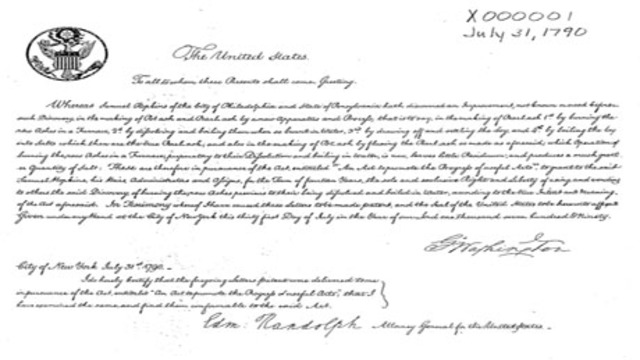 X000001
July 31, 1790
The United States.
To all to whom these Presents shall come, Greeting.
Whereas Samuel Hopkins of the City of Philadelphia and State of Pensylvania hath discovered an Improvement, not known or used before
such Discovery, in the making of Pot ash and Pearl ash by a new Apparatus and Process, that is to say, in the making of Pearl ash 1st by burning the
raw Ashes in a Furnace, 2d by dissolving and boiling them when so burnt in Water, 3d by drawing off and settling the Ley, and 4th by boiling the Ley
into Salts which then are the true Pearl ash, and also in the making of Pot ash by fluxing the Pearl ash so made as aforesaid, which Operation of
burning the raw Ashes in a Furnace, preparatory to their Dissolution and boiling in Water, is new, leaves little Residuum, and produces a much greater
Quantity of Salt: These are therefore in pursuance of the Act, entitled "An Act to promote the Progress of useful Arts", to grant to the said
Samuel Hopkins, his Heirs, Administrators and Assigns, for the Term of fourteen Years, the sole and exclusive Right and Liberty of using and vending
to others the said Discovery of burning the raw Ashes previous to their being dissolved and boiled in Water, according to the true Intent and meaning
of the Act aforesaid. In Testimony whereof I have caused these Letters to be made patent, and the Seal of the United States to be hereunto affixed
Given under my Hand at the City of New York this thirty first Day of July in the Year of our Lord one thousand seven hundred & Ninety.
G. Washington
City of New York July 31st 1790.
I do hereby certify that the foregoing Letters patent were delivered to me
in pursuance of the Act, entitled "An Act to promote the Progress of useful Arts", that I
have examined the same, and find them conformable to the said Act.
Edm. Randolph Attorney General for the United States.